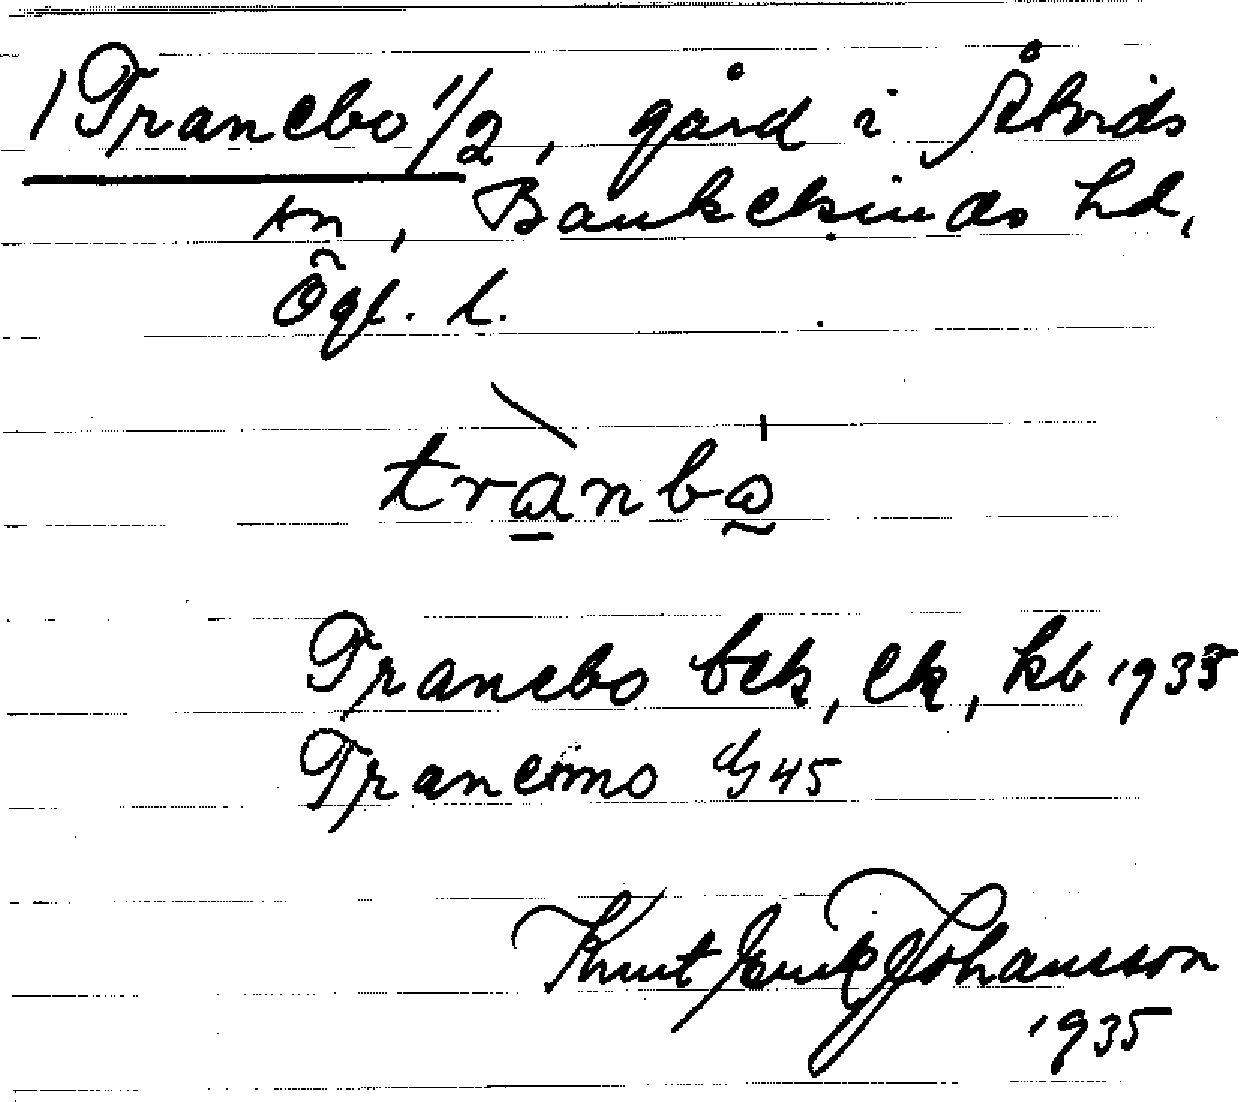 1 Tranebo 1/2, gård i Åtvids
sn, Bankekinds hd,
Ögl. l.
tranbo
Tranebo bek, ek, kb 1935
Tranemo G 45
Knut Erik Johansson
1935